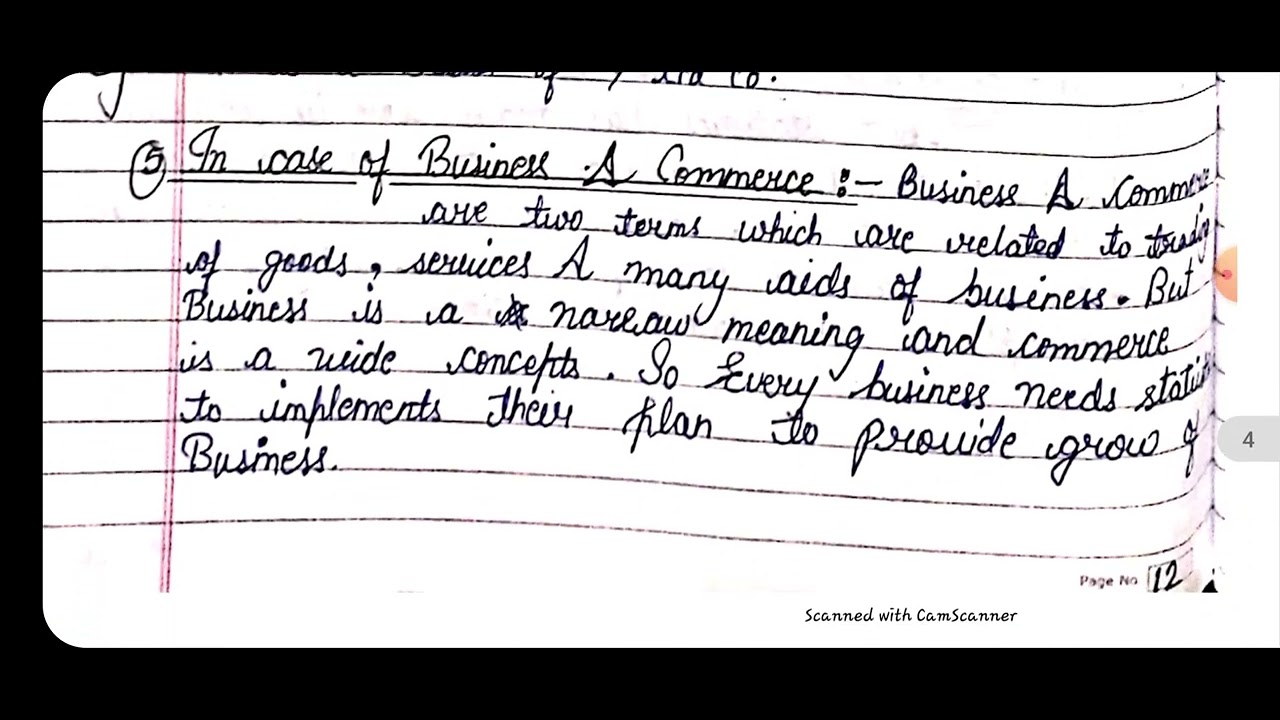 of / Ltd Co.
⑤ In case of Business & Commerce :- Business & Commerce
are two terms which are related to trading
of goods, services & many aids of business. But
Business is a narrow meaning and commerce
is a wide concepts. So Every business needs
to implements their plan to provide grow of
Business.
Page No 12
Scanned with CamScanner
4